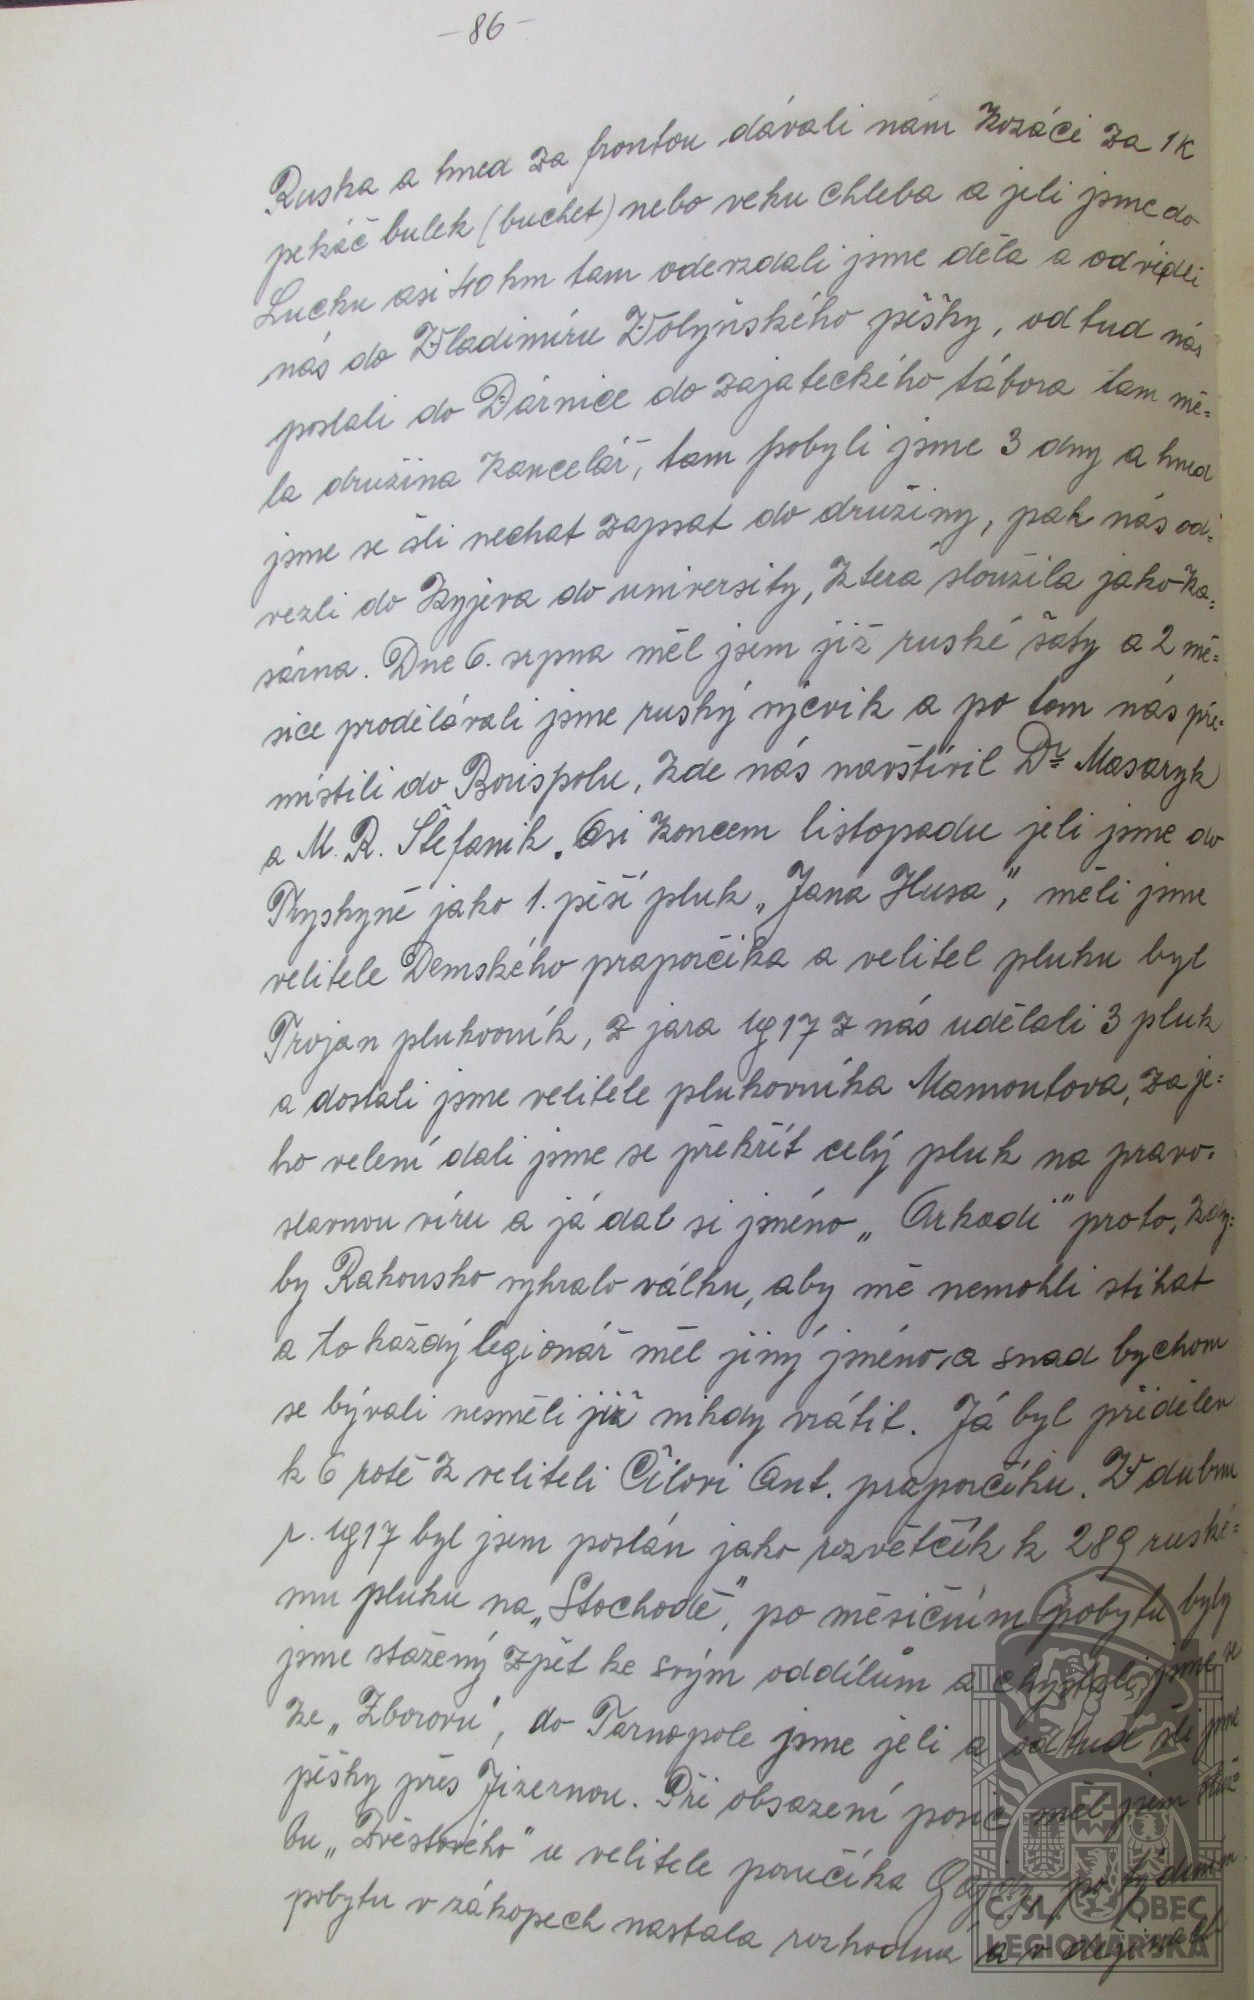 - 86 -
Ruska a hned za frontou dávali nám Kozáci za 1 K
pekáč bulek (buchet) nebo veku chleba a jeli jsme do
Lucku asi 40 km tam odevzdali jsme děla a odvídli
nás do Vladimíru Volyňského pěšky, od tud nás
poslali do Dárnice do zajateckého tábora tam mě=
la družina kancelář, tam pobyli jsme 3 dny a hned
jsme se šli nechat zapsat do družiny, pak nás od=
vezli do Kyjeva do university, která sloužila jako ka=
sárna. Dne 6. srpna měl jsem již ruské šaty a 2 mě=
síce prodělávali jsme ruský výcvik a po tom nás pře=
místili do Borispolu, kde nás navštívil Dr. Masaryk
a M. R. Štefanik. Asi koncem listopadu jeli jsme do
Pryskyně jako 1. pěší pluk „Jana Husa", měli jsme
velitele Demského praporčíka a velitel pluku byl
Trojan plukovník, z jara 1917 z nás udělali 3 pluk
a dostali jsme velitele plukovníka Mamontova, za je=
ho velení dali jsme se překřít celý pluk na pravo=
slavnou víru a já dal si jméno „Arkadi" proto, kdy=
by Rakousko vyhralo válku, aby mě nemohli stihat
a to každý legionář měl jiný jméno, a snad bychom
se bývali nesměli již nikdy vrátit. Já byl přidělen
k 6 rotě k veliteli Čílovi Ant. praporčíku. V dubnu
r. 1917 byl jsem poslán jako rozvětčík k 289 ruské=
mu pluku na „Stochodě", po měsičním pobytu byly
jsme staženy zpět ke svým oddílům a chystali jsme se
ke „Zborovu", do Tarnopole jsme jeli a od tud šli jsme
pěšky přes Jizernou. Při obsazení posic měl jsem služ=
bu „Zvěstového" u velitele poručíka Gajdy, po týdenním
pobytu v zákopech nastala rozhodná a v dějinách
Č. SL. OBEC
LEGIONÁŘSKÁ